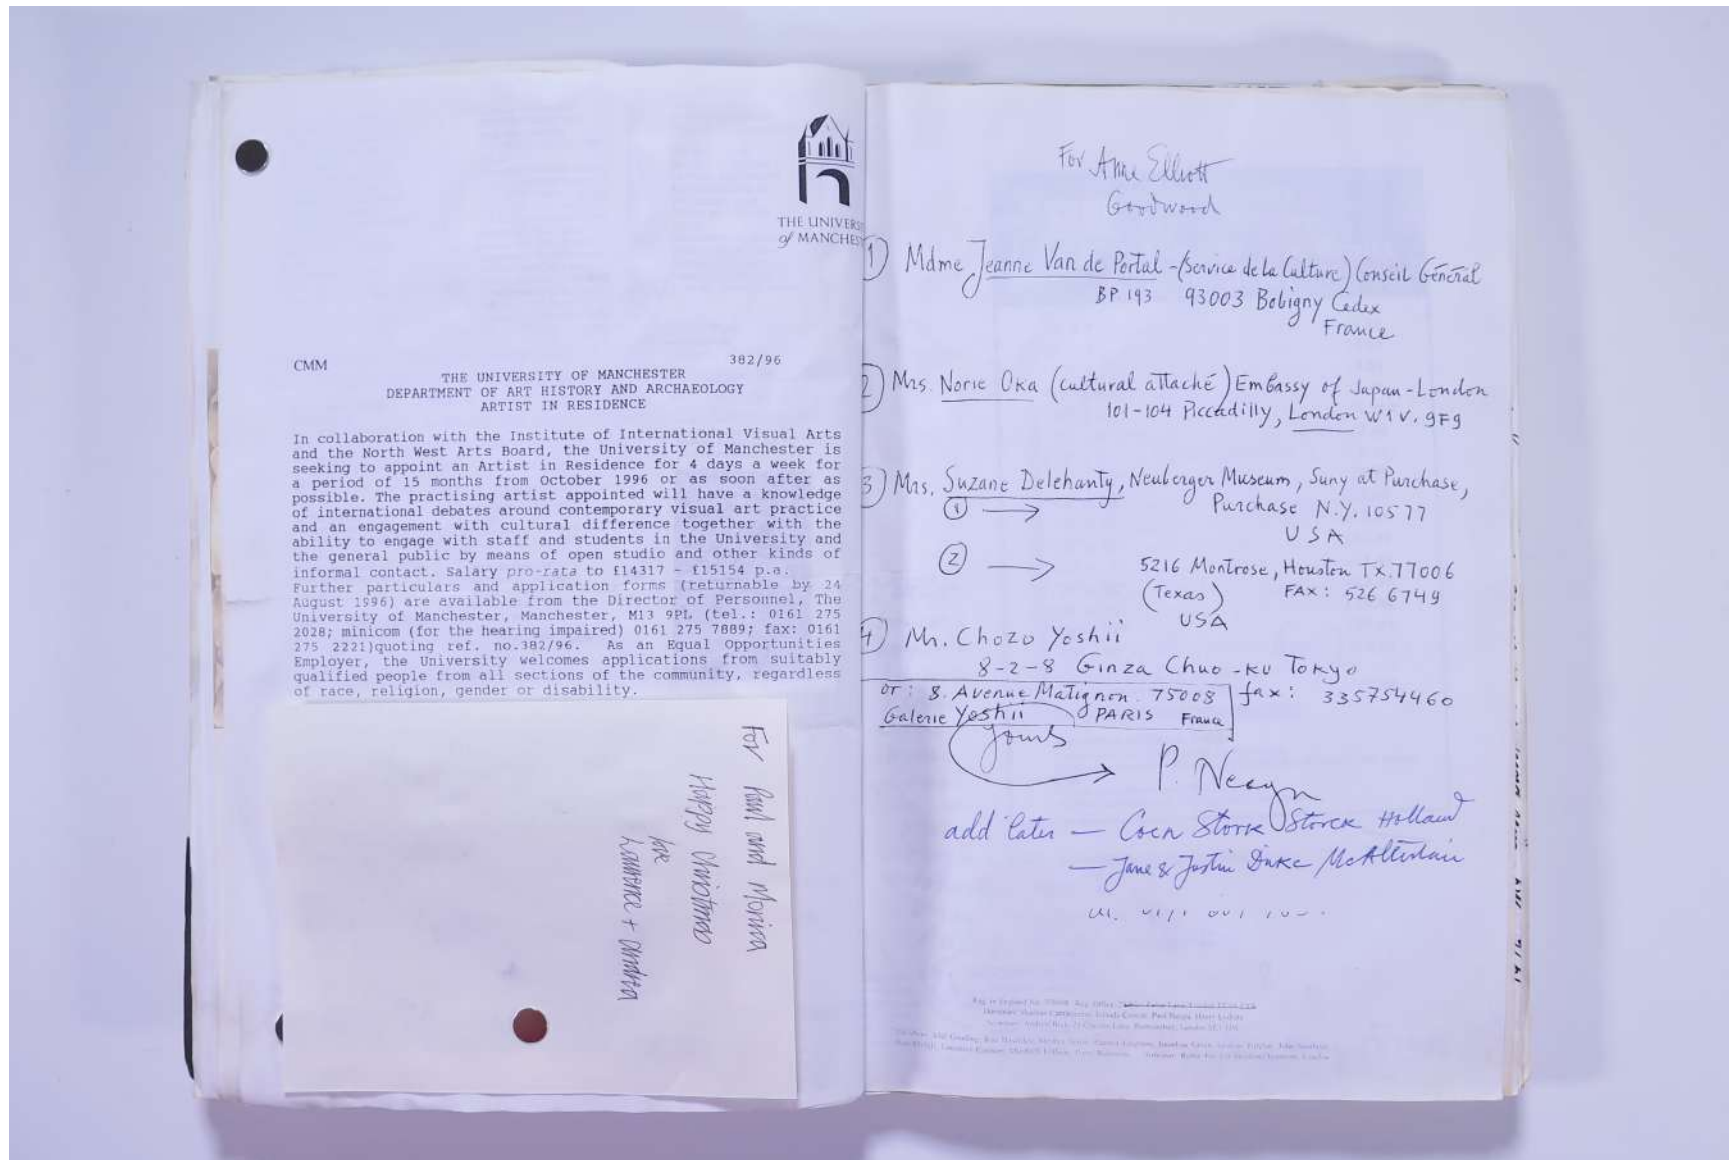 THE UNIVERS
of MANCHES
CMM 382/96
THE UNIVERSITY OF MANCHESTER
DEPARTMENT OF ART HISTORY AND ARCHAEOLOGY
ARTIST IN RESIDENCE
In collaboration with the Institute of International Visual Arts
and the North West Arts Board, the University of Manchester is
seeking to appoint an Artist in Residence for 4 days a week for
a period of 15 months from October 1996 or as soon after as
possible. The practising artist appointed will have a knowledge
of international debates around contemporary visual art practice
and an engagement with cultural difference together with the
ability to engage with staff and students in the University and
the general public by means of open studio and other kinds of
informal contact. Salary pro-rata to £14317 - £15154 p.a.
Further particulars and application forms (returnable by 24
August 1996) are available from the Director of Personnel, The
University of Manchester, Manchester, M13 9PL (tel.: 0161 275
2028; minicom (for the hearing impaired) 0161 275 7889; fax: 0161
275 2221)quoting ref. no.382/96. As an Equal Opportunities
Employer, the University welcomes applications from suitably
qualified people from all sections of the community, regardless
of race, religion, gender or disability.
For Paul and Monica
Happy Christmas
love
Lawrence + Andrea
For Anne Elliott
Goodwood
1) Mdme Jeanne Van de Portal - (Service de la Culture) Conseil Général
BP 193 93003 Bobigny Cedex
France
2) Mrs. Norie Oka (cultural attaché) Embassy of Japan - London
101-104 Piccadilly, London W1V. 9F9
3) Mrs. Suzane Delehanty, Neuberger Museum, Suny at Purchase,
① → Purchase N.Y. 10577
USA
② → 5216 Montrose, Houston TX. 77006
(Texas) FAX: 526 6749
USA
4) Mr. Chozo Yoshii
8-2-8 Ginza Chuo-ku Tokyo
or: 8. Avenue Matignon. 75008 fax: 335754460
Galerie Yoshii PARIS France
Yours
P. Neagu
add later — Coen Stork Storck Holland
— Jane & Justin Duke